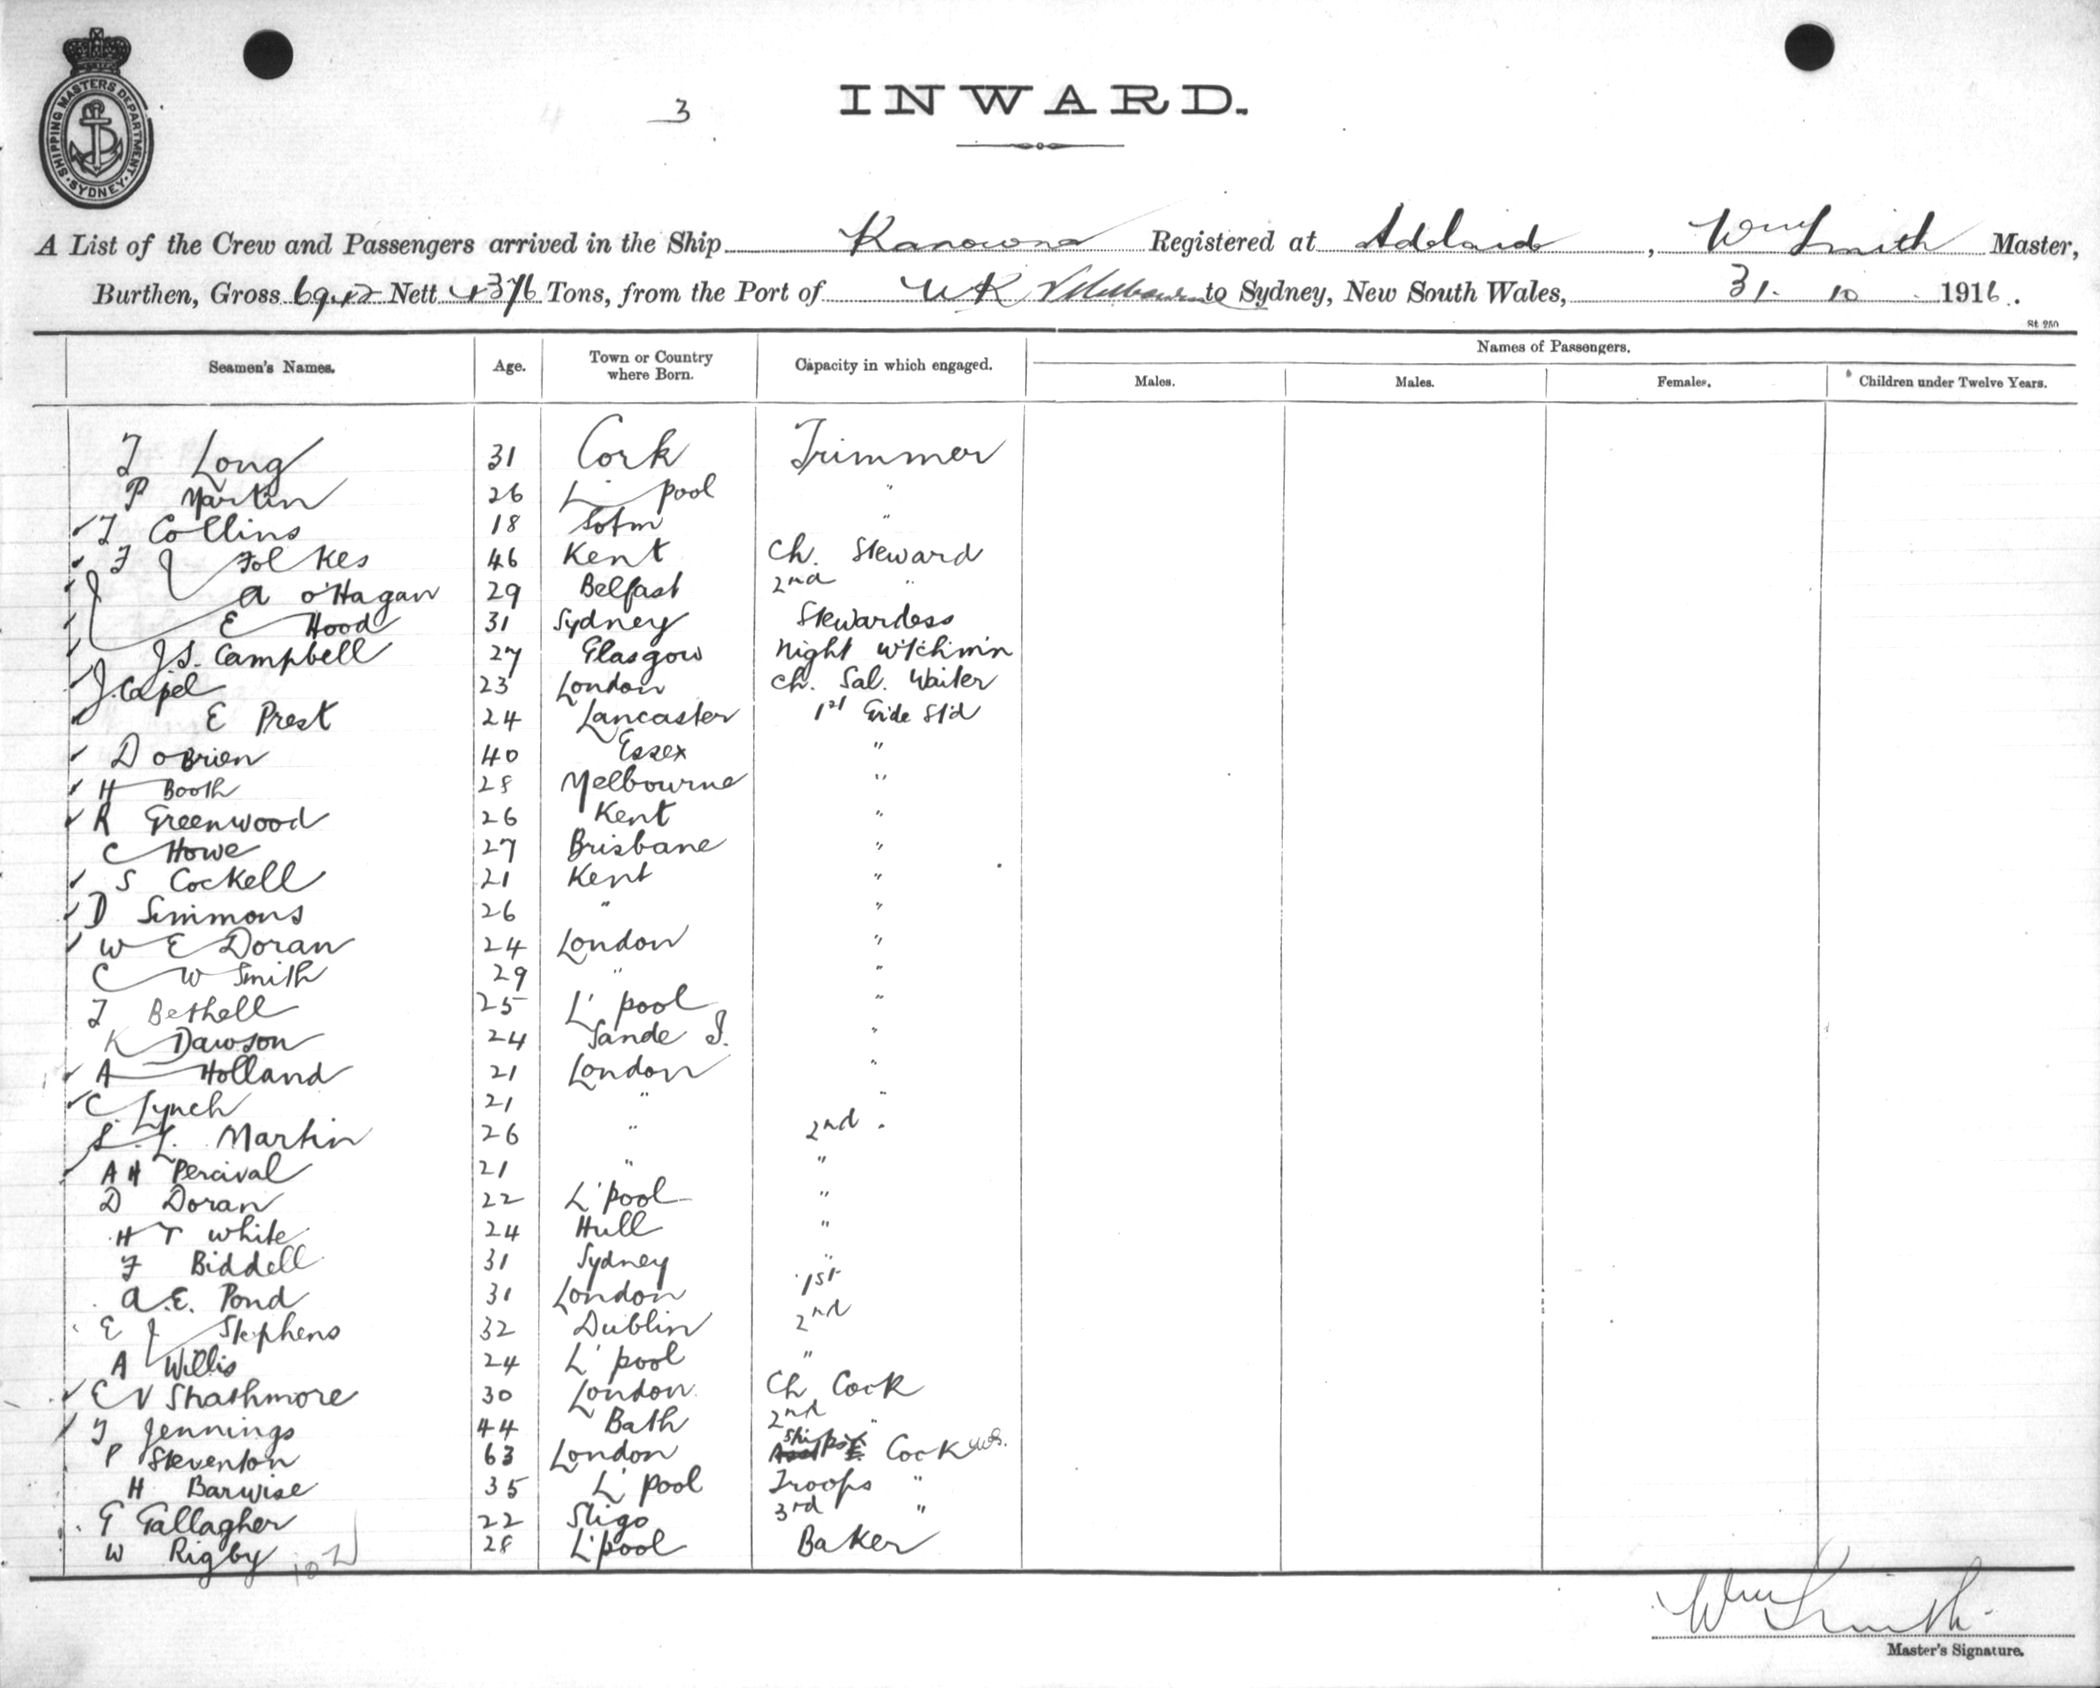 SHIPPING MASTERS DEPARTMENT. SYDNEY
3
INWARD.
A List of the Crew and Passengers arrived in the Ship Kanowna Registered at Adelaide, Wm Smith Master,
Burthen, Gross 6942 Nett 4376 Tons, from the Port of UK v Melbourne to Sydney, New South Wales, 31. 10 1916.
St 250
Seamen's Names. Age. Town or Country where Born. Capacity in which engaged. Names of Passengers.
Males. Males. Females. Children under Twelve Years.
T Long 31 Cork Trimmer
P Martin 26 L'pool "
T Collins 18 Sotm "
F J Folkes 46 Kent Ch. Steward
A O'Hagan 29 Belfast 2nd "
E Hood 31 Sydney Stewardess
J.S. Campbell 27 Glasgow Night W'tchm'n
J. Capel 23 London Ch. Sal. Waiter
E Prest 24 Lancaster 1st Gr'de St'd
D O'Brien 40 Essex "
H Booth 28 Melbourne "
R Greenwood 26 Kent "
C Howe 27 Brisbane "
S Cockell 21 Kent "
D Simmons 26 " "
W E Doran 24 London "
C W Smith 29 " "
T Bethell 25 L'pool "
K Dawson 24 Sande I. "
A Holland 21 London "
C Lynch 21 " "
S. L. Martin 26 " 2nd "
A H Percival 21 " "
D Doran 22 L'pool "
H T White 24 Hull "
F Biddell 31 Sydney "
A.E. Pond 31 London 1st
E J Stephens 32 Dublin 2nd
A Willis 24 L'pool "
E V Strathmore 30 London Ch Cook
T Jennings 44 Bath 2nd "
P Steventon 63 London Ships Cook
H Barwise 35 L'pool Troops "
G Gallagher 22 Sligo 3rd "
W Rigby 28 L'pool Baker
Wm Smith
Master's Signature.